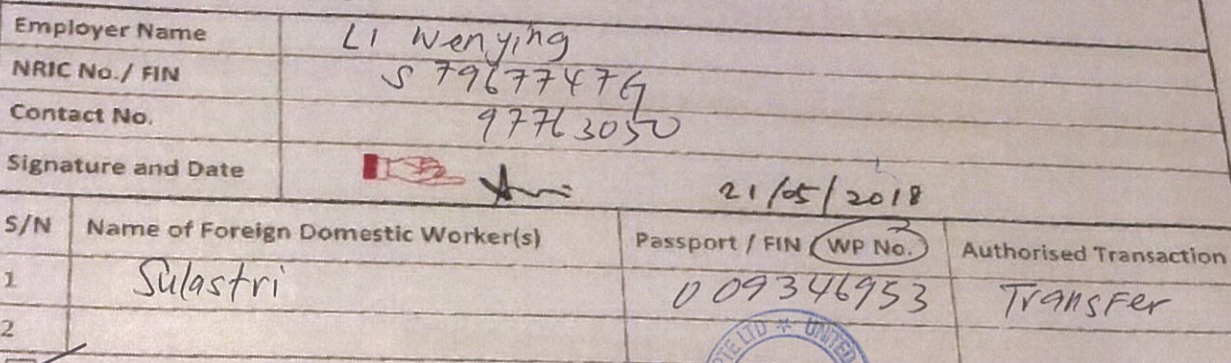 Employer Name LI Wenying
NRIC No./ FIN S7967747G
Contact No. 97763050
Signature and Date 21/05/2018
S/N Name of Foreign Domestic Worker(s) Passport / FIN WP No. Authorised Transaction
1 Sulastri 0 09346953 Transfer
2
PTE LTD * UNITED